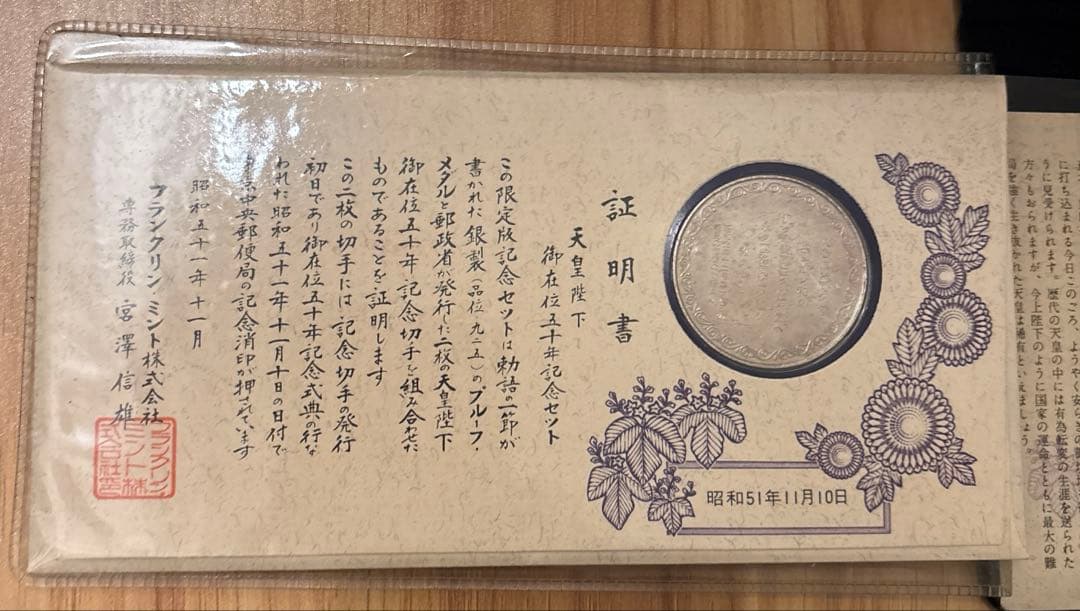 証明書
天皇陛下
御在位五十年記念セット
この限定版記念セットは勅語の一節が
書かれた銀製(品位九二五)のプルーフ・
メダルと郵政省が発行した二枚の天皇陛下
御在位五十年記念切手を組み合わせた
ものであることを証明します
この二枚の切手には、記念切手の発行
初日であり御在位五十年記念式典の行な
われた昭和五十一年十一月十日の日付で
東京中央郵便局の記念消印が押されています
昭和五十一年十一月
フランクリン・ミント株式会社
専務取締役 宮澤信雄
フランクリン
ミント株
式会社印
昭和51年11月10日
に打ち込まれる今日このごろ、ようやく安らぎの
うに見受けられます。歴代の天皇の中には有為転変の生涯を送られた
方々もおられますが、今上陛下のように国家の運命とともに最大の難
局を強く生き抜かれた天皇は稀有といえましょう。